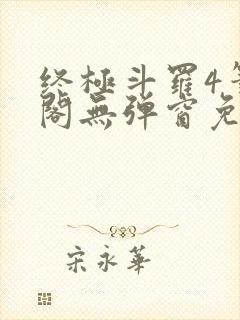 終極斗羅4筆
閣無彈窗免
宋永華